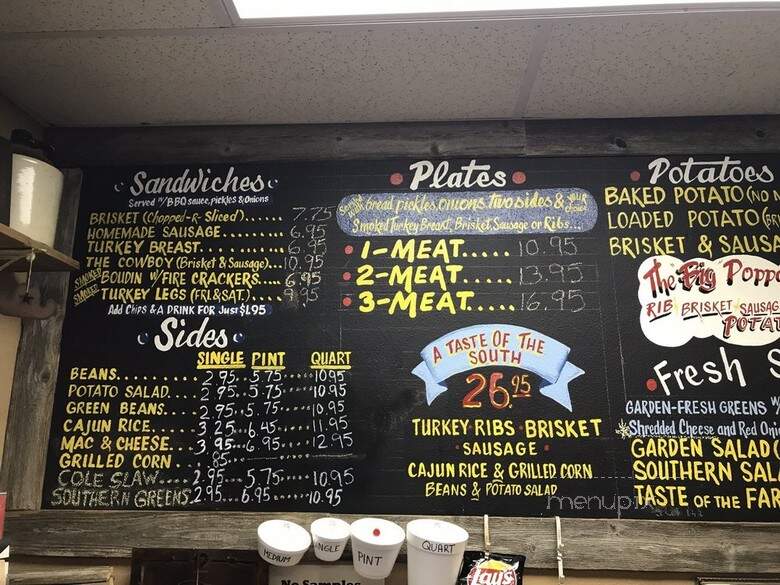 Sandwiches
Served W/BBQ sauce, pickles & Onions
BRISKET (Chopped -R- Sliced)...... 7.75
HOMEMADE SAUSAGE........ 6.95
TURKEY BREAST........... 6.95
THE COWBOY (Brisket & Sausage)...10.95
SMOKED BOUDIN W/FIRE CRACKERS.... 6.95
SMOKED TURKEY LEGS (FRI.&SAT.).....
Add Chips & A DRINK FOR JUST $1.95
Sides
SINGLE PINT QUART
BEANS.......... 2.95...5.75......10.95
POTATO SALAD.... 2.95...5.75......10.95
GREEN BEANS.... 2.95...5.75......10.95
CAJUN RICE..... 3.25...6.45......11.95
MAC & CHEESE... 3.95...6.95......12.95
GRILLED CORN ... .85
COLE SLAW.... 2.95...5.75.....10.95
SOUTHERN GREENS.2.95...6.95.....10.95
Plates
Served W/ bread, pickles, onions, two sides & YOUR choice
Smoked Turkey Breast, Brisket, Sausage or Ribs...
1-MEAT..... 10.95
2-MEAT..... 13.95
3-MEAT..... 16.95
A TASTE OF THE
SOUTH
26.95
TURKEY RIBS BRISKET
SAUSAGE
CAJUN RICE & GRILLED CORN
BEANS & POTATO SALAD
Potatoes
BAKED POTATO (NO
LOADED POTATO
BRISKET & SAUSA
The Big Poppa
RIB BRISKET SAUSAG
POTAT
Fresh S
GARDEN-FRESH GREENS W
Shredded Cheese and Red Oni
GARDEN SALAD
SOUTHERN SAL
TASTE OF THE FAR
menupix
MEDIUM
INGLE
PINT
QUART
No Samples
Lay's